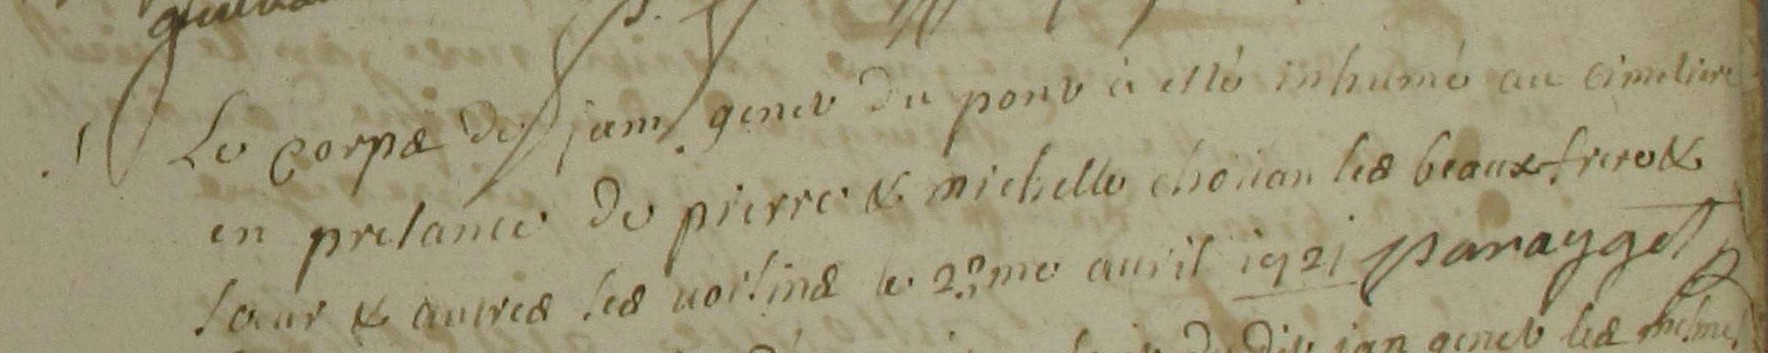 Le corps de jam genet du pont à esté inhumé au cimetiere
en presance de pierre & michelle choüan ses beaux frere &
sœur & autres ses voisins le 23me auril 1721
du dit jan genet les mesmes